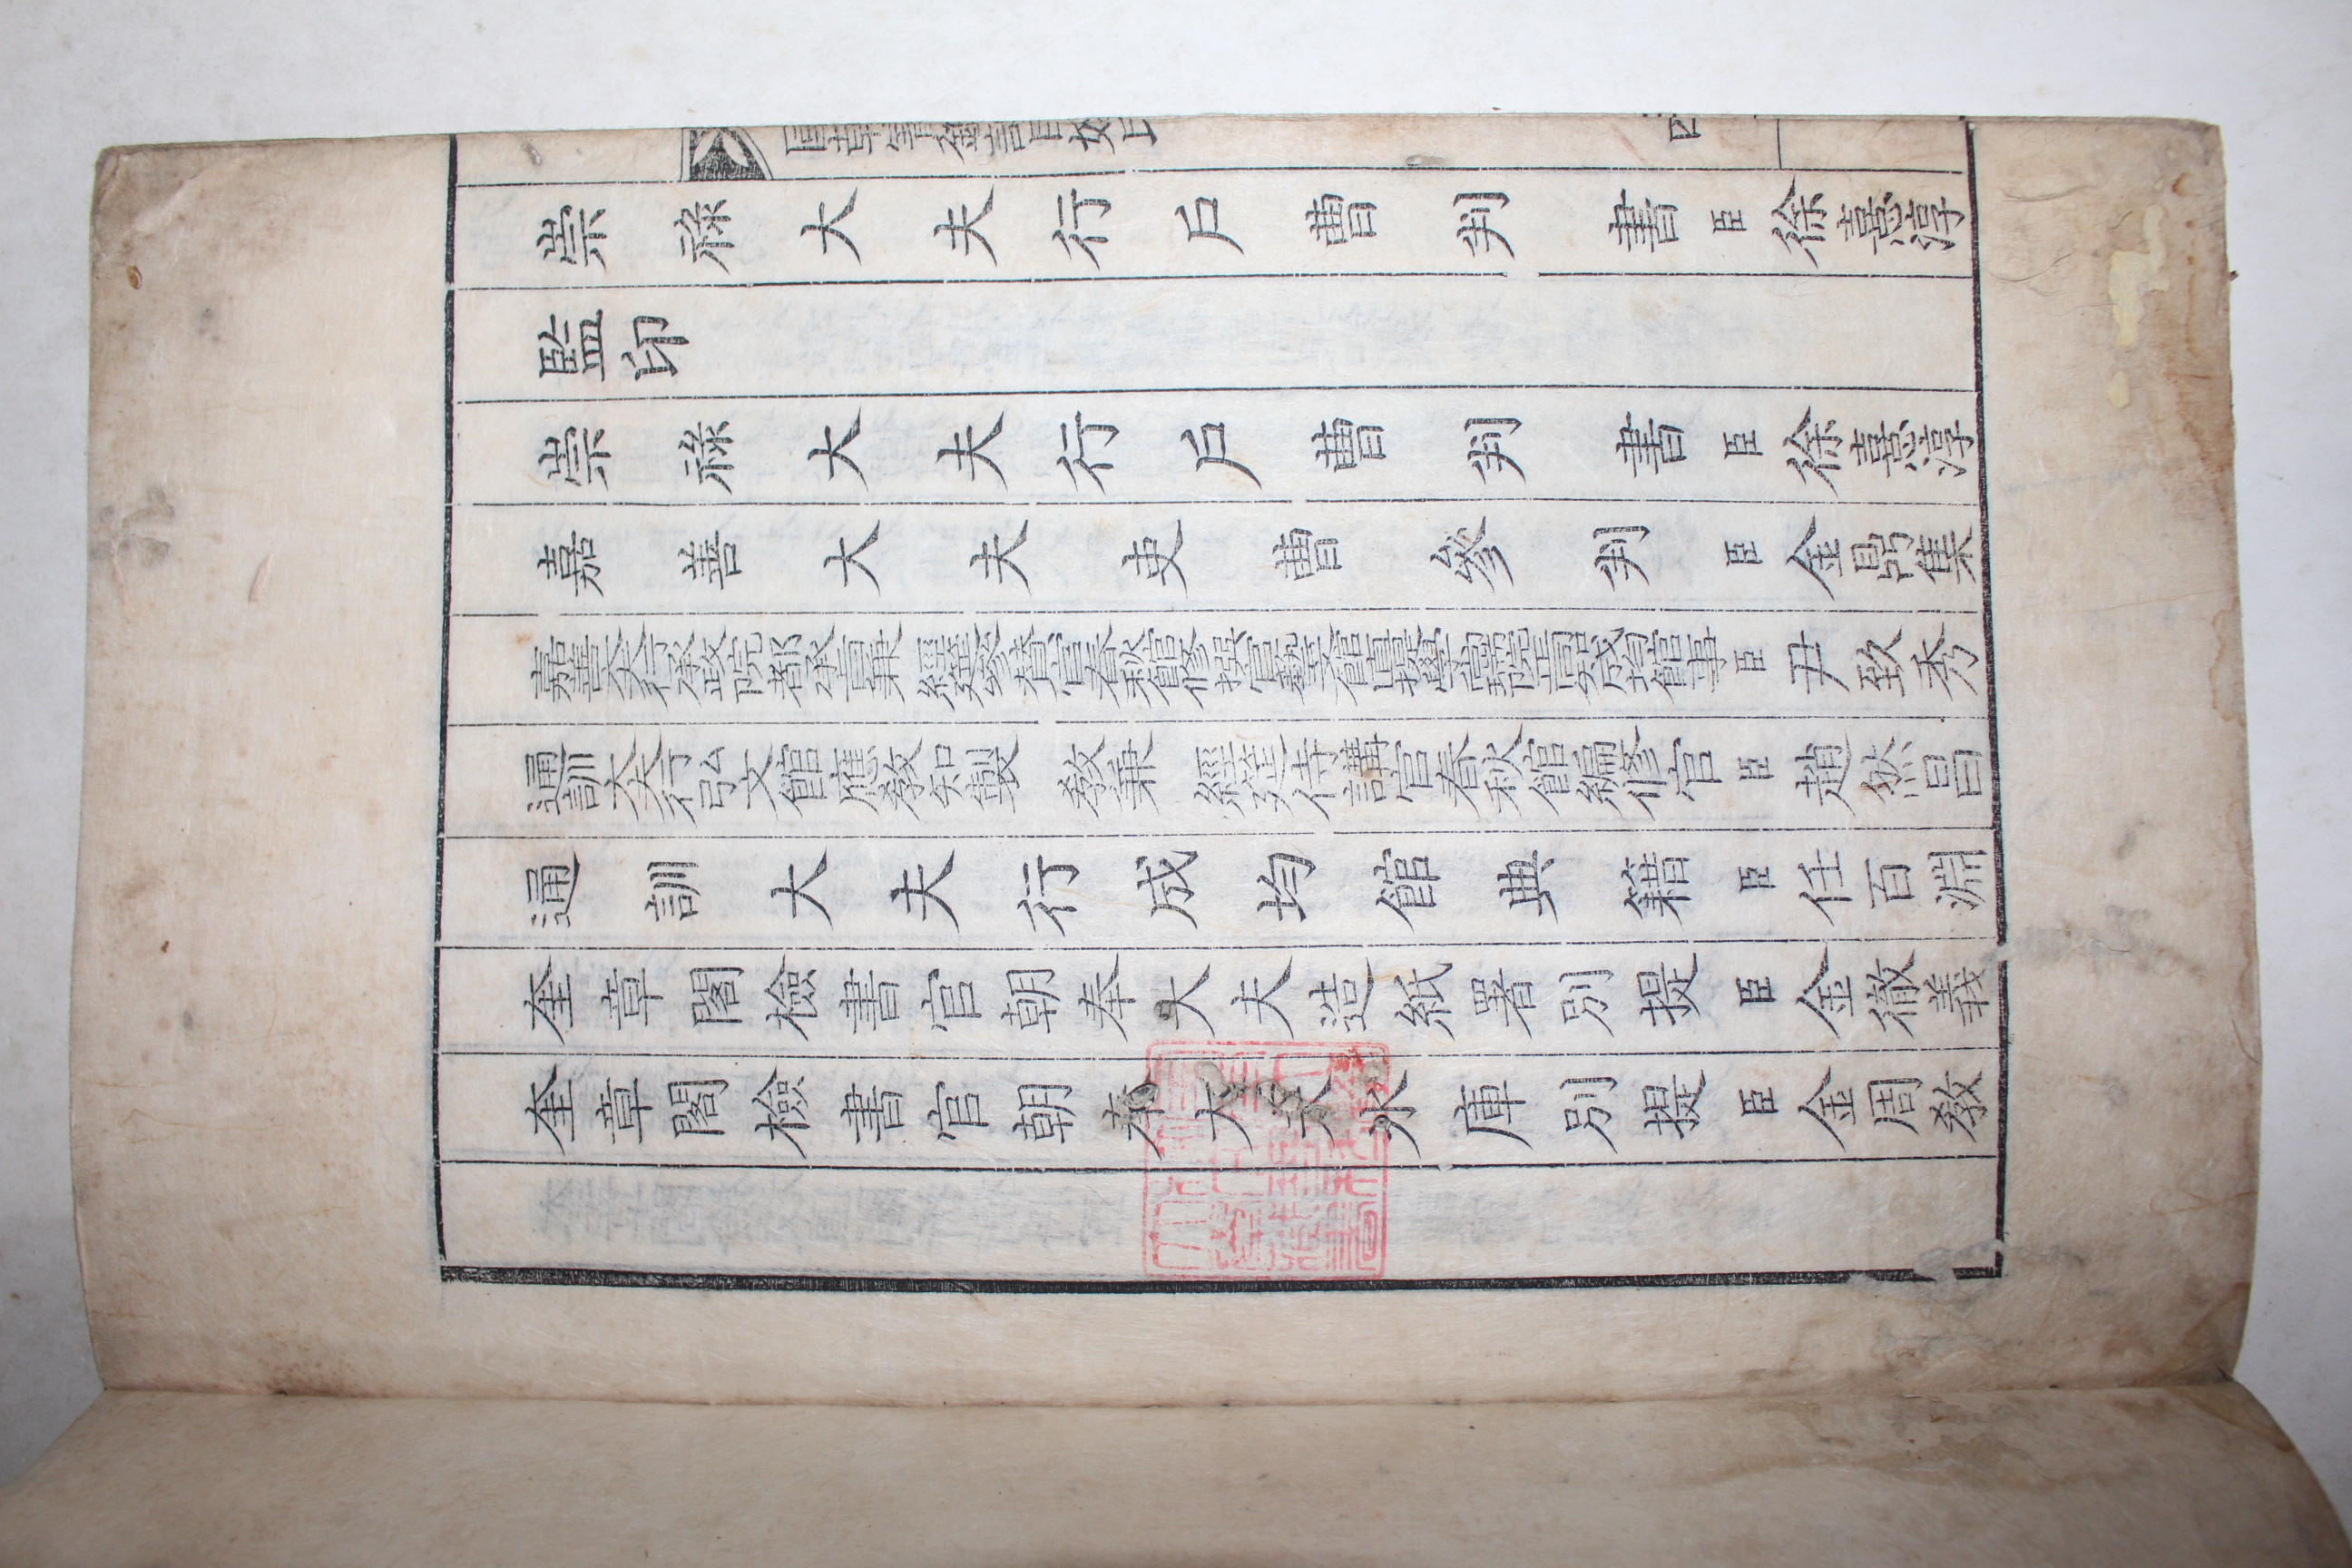 崇祿大夫行戶曹判書臣徐憙淳
監印
崇祿大夫行戶曹判書臣徐憙淳
嘉善大夫吏曹參判臣金鼎集
嘉善大夫行承政院都承旨兼 經筵參贊官春秋館修撰官藝文館直提學尙瑞院正同知成均館事臣尹致秀
通訓大夫行弘文館應敎知製 敎兼 經筵侍講官春秋館編修官臣趙然昌
通訓大夫行成均館典籍臣任百淵
奎章閣檢書官朝奉大夫造紙署別提臣金徹義
奎章閣檢書官朝奉大夫氷庫別提臣金周敎